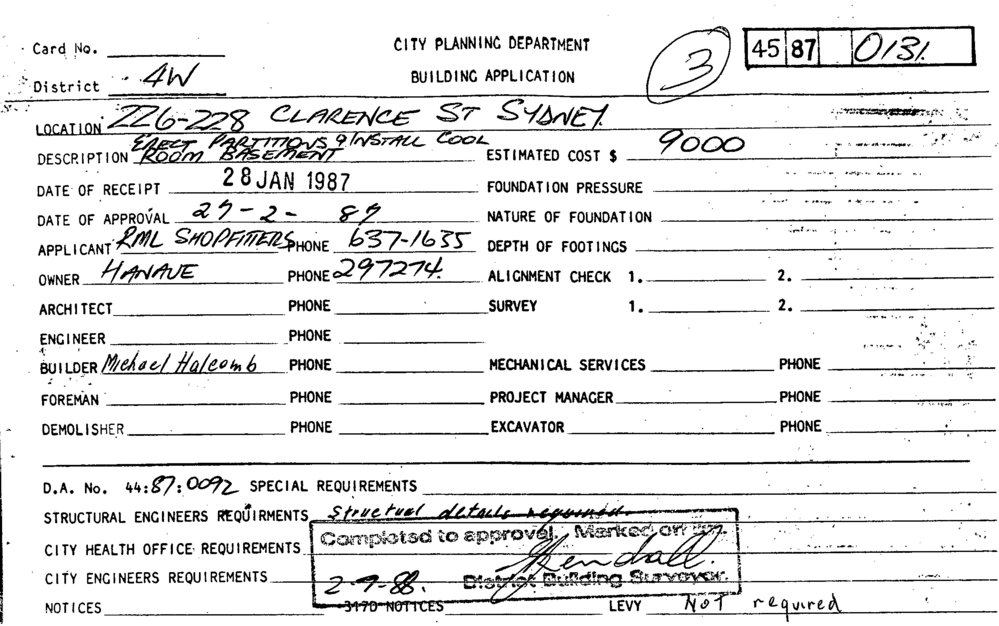 Card No. CITY PLANNING DEPARTMENT 3 45 87 0131
District 4W BUILDING APPLICATION
LOCATION 226-228 CLARENCE ST SYDNEY.
ERECT PARTITIONS & INSTALL COOL
DESCRIPTION ROOM BASEMENT ESTIMATED COST $ 9000
DATE OF RECEIPT 28 JAN 1987 FOUNDATION PRESSURE
DATE OF APPROVAL 27-2-87 NATURE OF FOUNDATION
APPLICANT RML SHOPFITTERS PHONE 637-1635 DEPTH OF FOOTINGS
OWNER HANAVE PHONE 297274. ALIGNMENT CHECK 1. 2.
ARCHITECT PHONE SURVEY 1. 2.
ENGINEER PHONE
BUILDER Michael Halcomb PHONE MECHANICAL SERVICES PHONE
FOREMAN PHONE PROJECT MANAGER PHONE
DEMOLISHER PHONE EXCAVATOR PHONE
D.A. No. 44:87:0092 SPECIAL REQUIREMENTS
STRUCTURAL ENGINEERS REQUIRMENTS Structual details required.
Completed to approval. Marked off
CITY HEALTH OFFICE REQUIREMENTS Kendall.
CITY ENGINEERS REQUIREMENTS 2-9-88. District Building Surveyor.
NOTICES 317D NOTICES LEVY NOT required